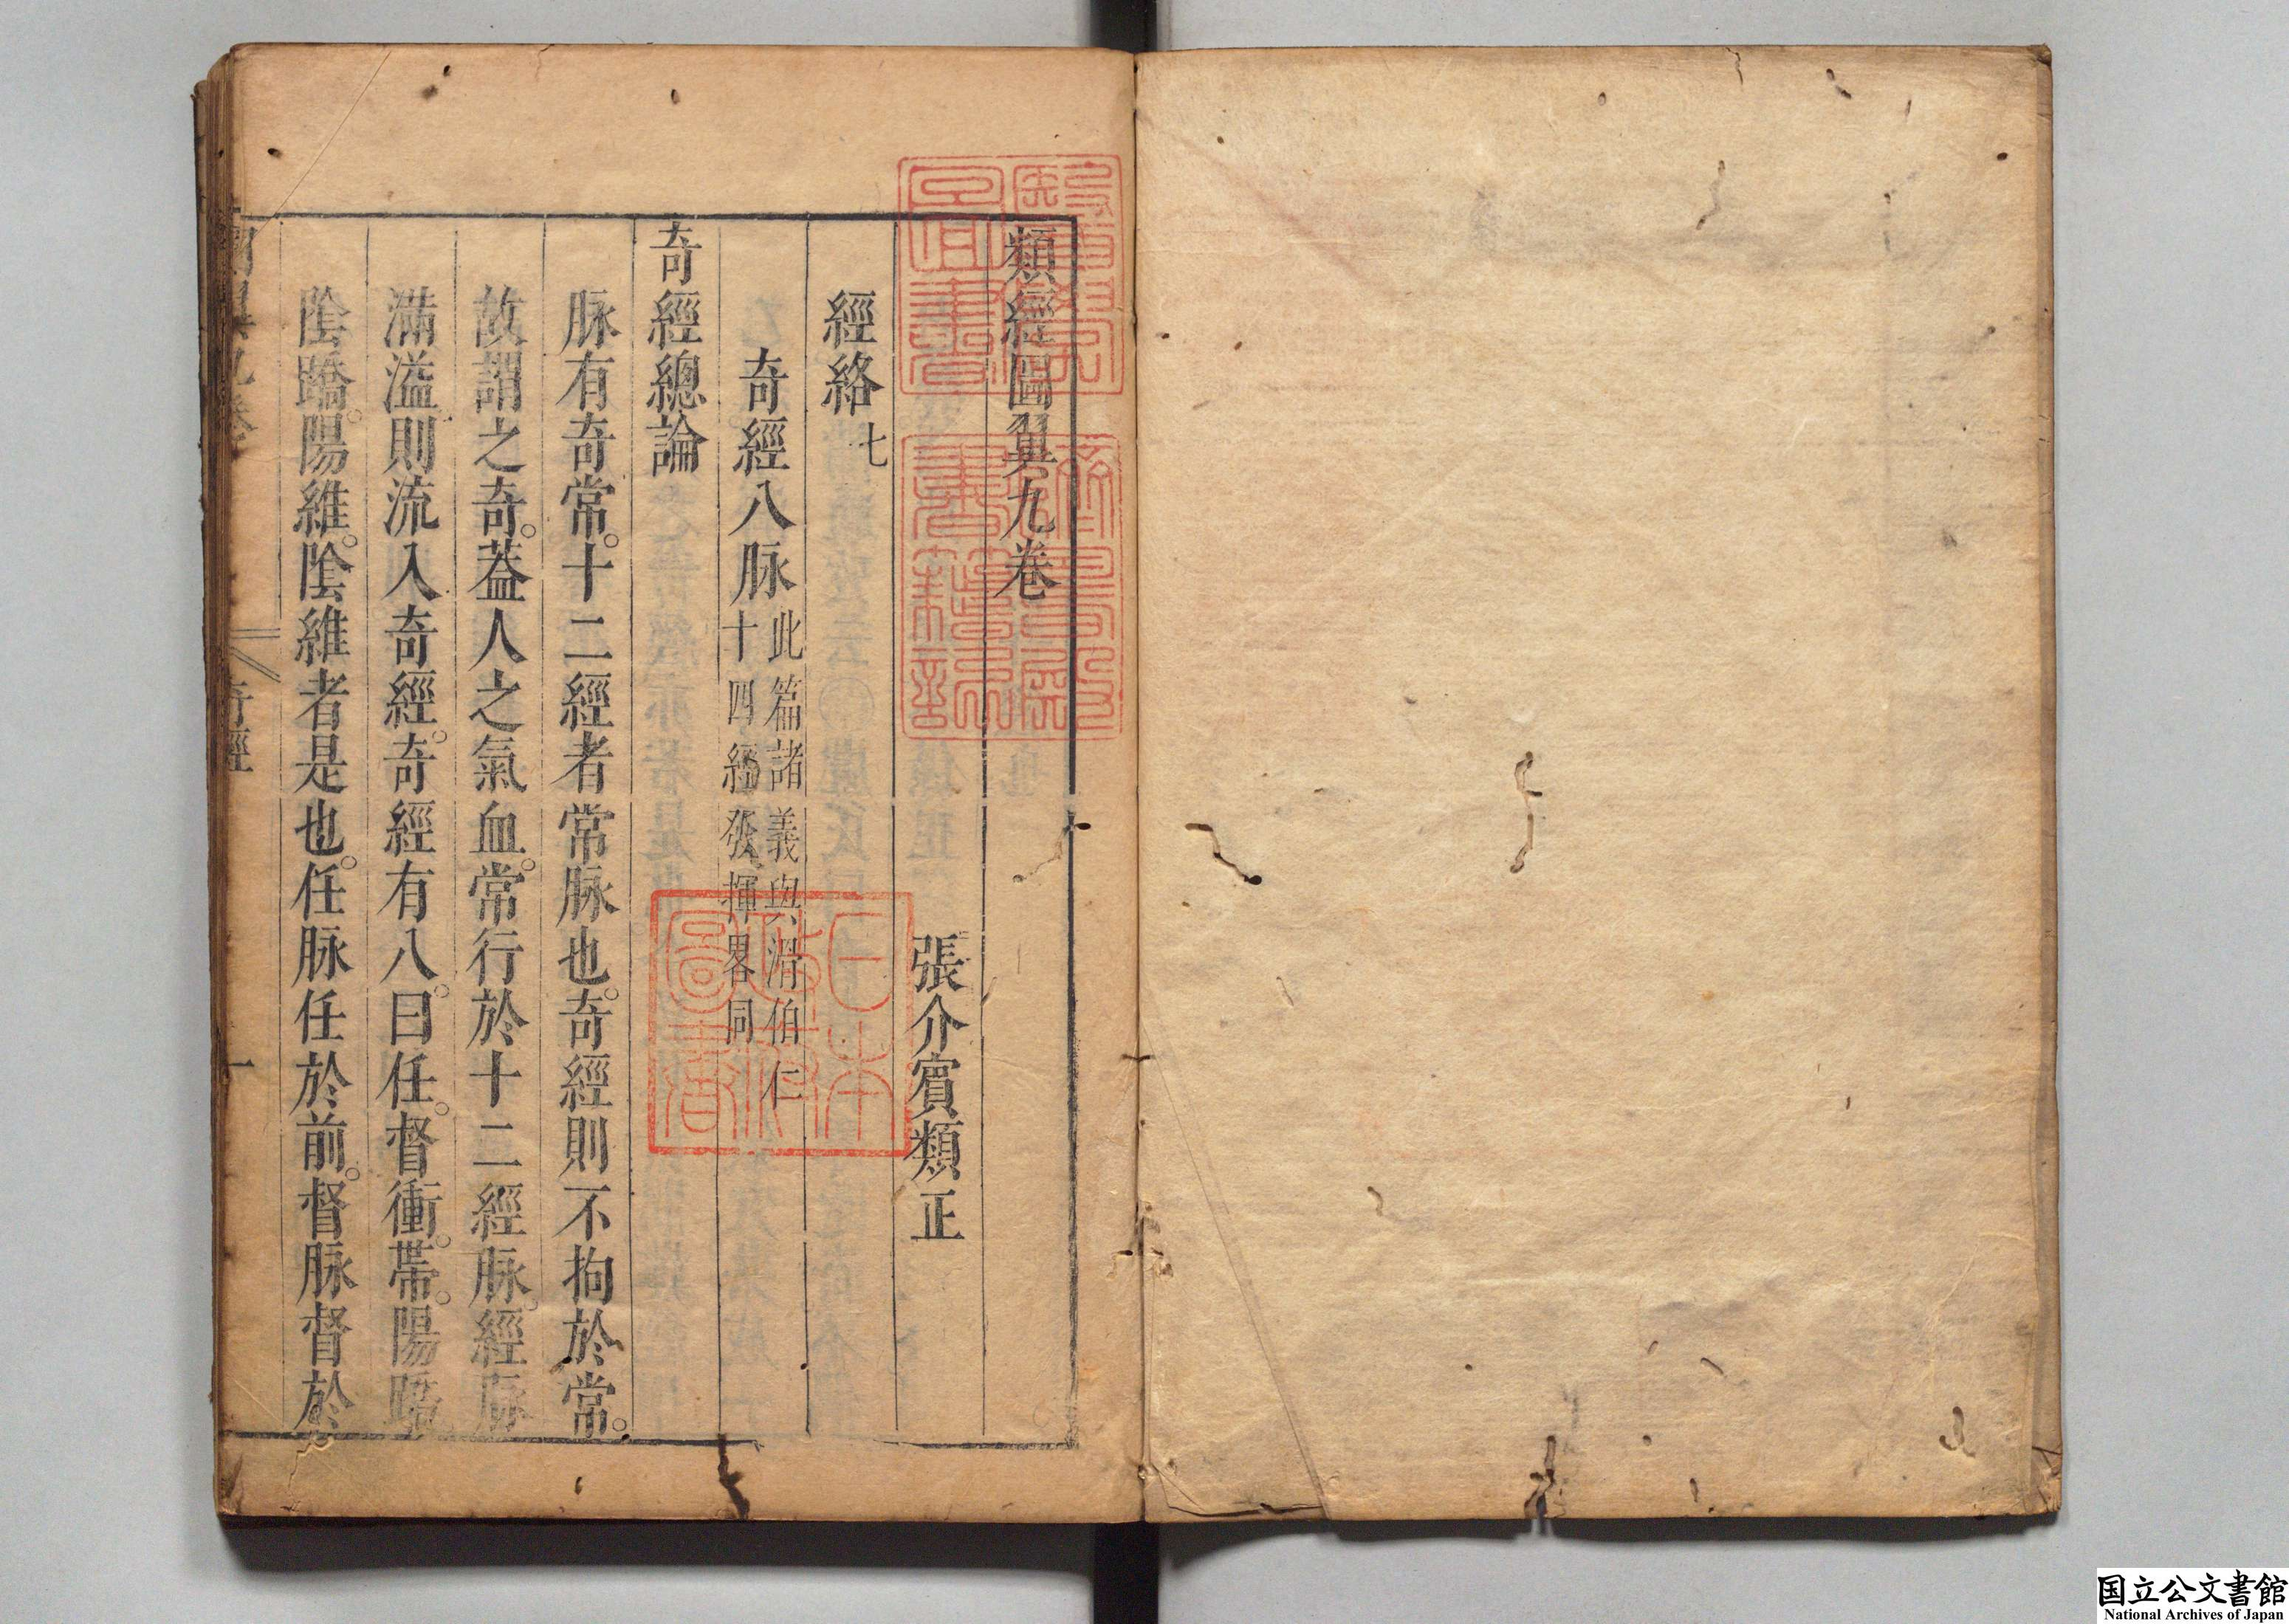 類經圖翼九卷
張介賓類正
經絡七
奇經八脉此篇諸義與滑伯仁
十四經發揮畧同
奇經總論
脉有奇常。十二經者常脉也。奇經則不拘於常。
故謂之奇。葢人之氣血。常行於十二經脉。經脉
滿溢則流入奇經。奇經有八。曰任。督衝。帶。陽蹻
陰蹻。陽維。陰維者是也。任脉任於前。督脉督於
奇經
一
日本
政府
圖書
国立公文書館
National Archives of Japan